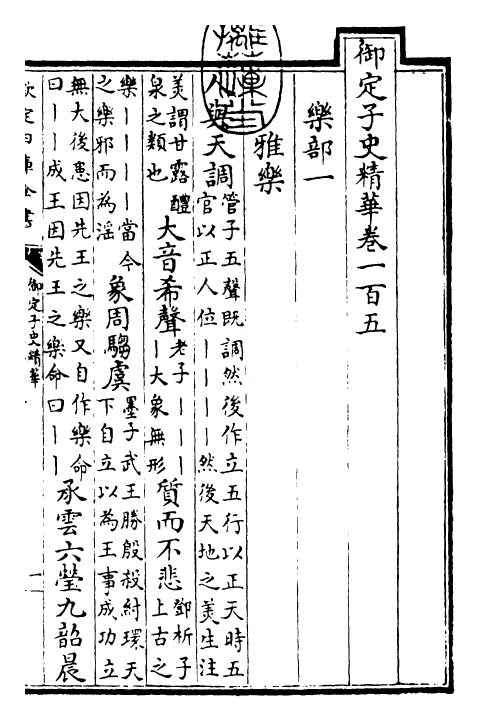 御定子史精華卷一百五
樂部一
雅樂
人與天調管子五聲既調然後作立五行以正天時五
官以正人位丨丨丨丨然後天地之美生注
美謂甘露醴
泉之類也大音希聲老子丨丨丨
丨大象無形質而不悲鄧析子
上古之
樂丨丨丨丨當今
之樂邪而為淫象周騶虞墨子武王勝殷殺紂環天
下自立以為王事成功立
無大後患因先王之樂又自作樂命
曰丨丨成王因先王之樂命曰丨丨承雲六瑩九韶晨
欽定四庫全書
御定子史精華
一